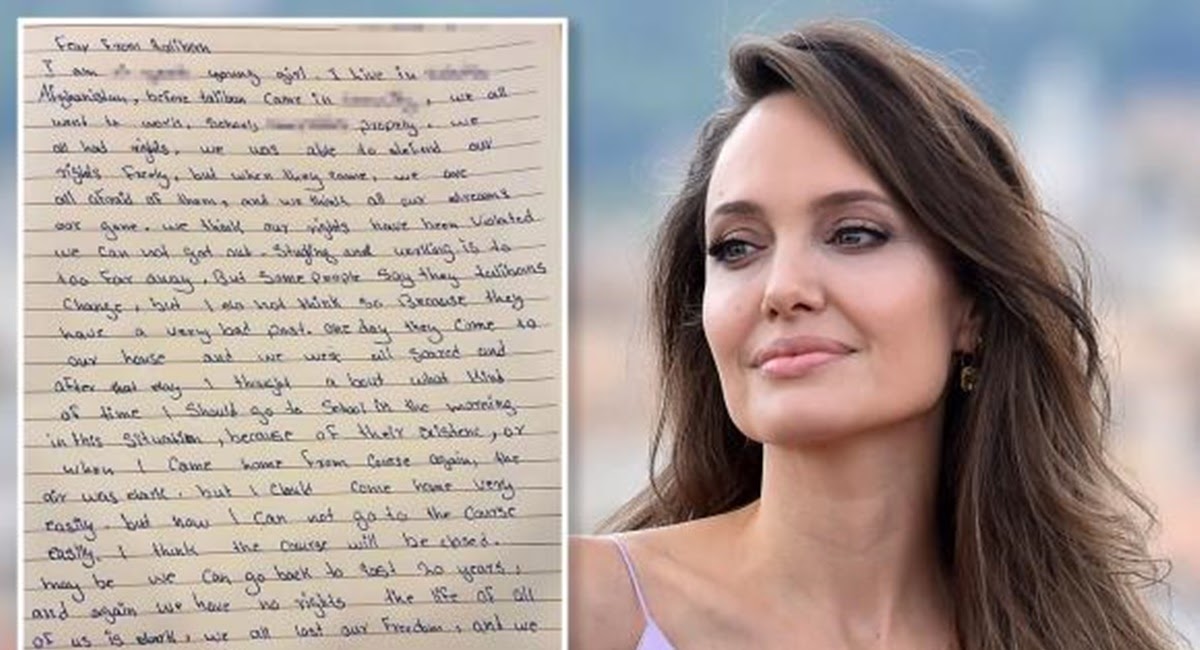 Fear From Taliban
I am young girl. I live in
Afghanistan, before taliban came in , we all
went to work, school, properly. we
all had rights. we was able to defend our
rights freely, but when they came, we are
all afraid of them, and we think all our dreams
are gone. we think our rights have been violated
we can not got out. Studing and working is to
too far away. But some people say they talibans
Change, but I do not think so Because they
have a very bad past. one day they come to
our house and we were all scared and
after that day I thought a bout what kind
of time I should go to School in the morning
in this situation, because of their existenc, or
when I came home from course again, the
air was dark. but I could come home very
easily. but now I can not go to the course
easily. I think the course will be closed.
may be we can go back to last 20 years,
and again we have no rights the life of all
of us is dark, we all lost our freedom, and we